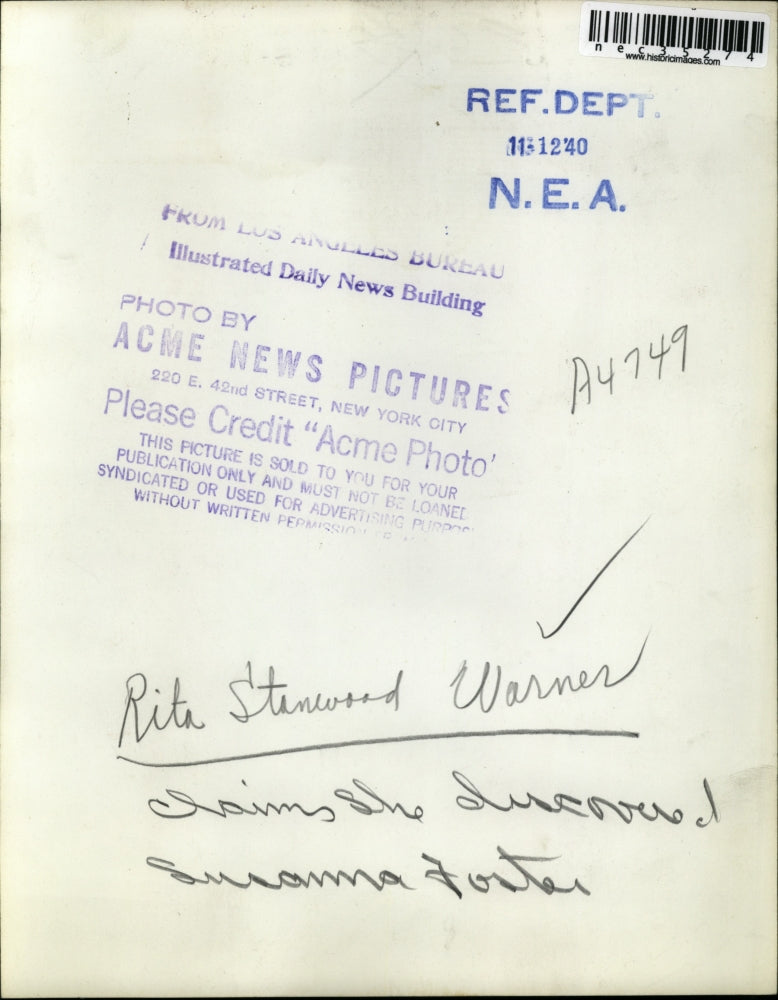 n e c 3 5 2 7 4
www.historicimages.com
REF. DEPT.
11 12 '40
N. E. A.
FROM LOS ANGELES BUREAU
Illustrated Daily News Building
PHOTO BY
ACME NEWS PICTURES
220 E. 42nd STREET, NEW YORK CITY
Please Credit "Acme Photo'
THIS PICTURE IS SOLD TO YOU FOR YOUR
PUBLICATION ONLY AND MUST NOT BE LOANED
SYNDICATED OR USED FOR ADVERTISING PURPOS
WITHOUT WRITTEN PERMISSION
A4749
Rita Stanwood Warner
Claims She discovered
Susanna Foster